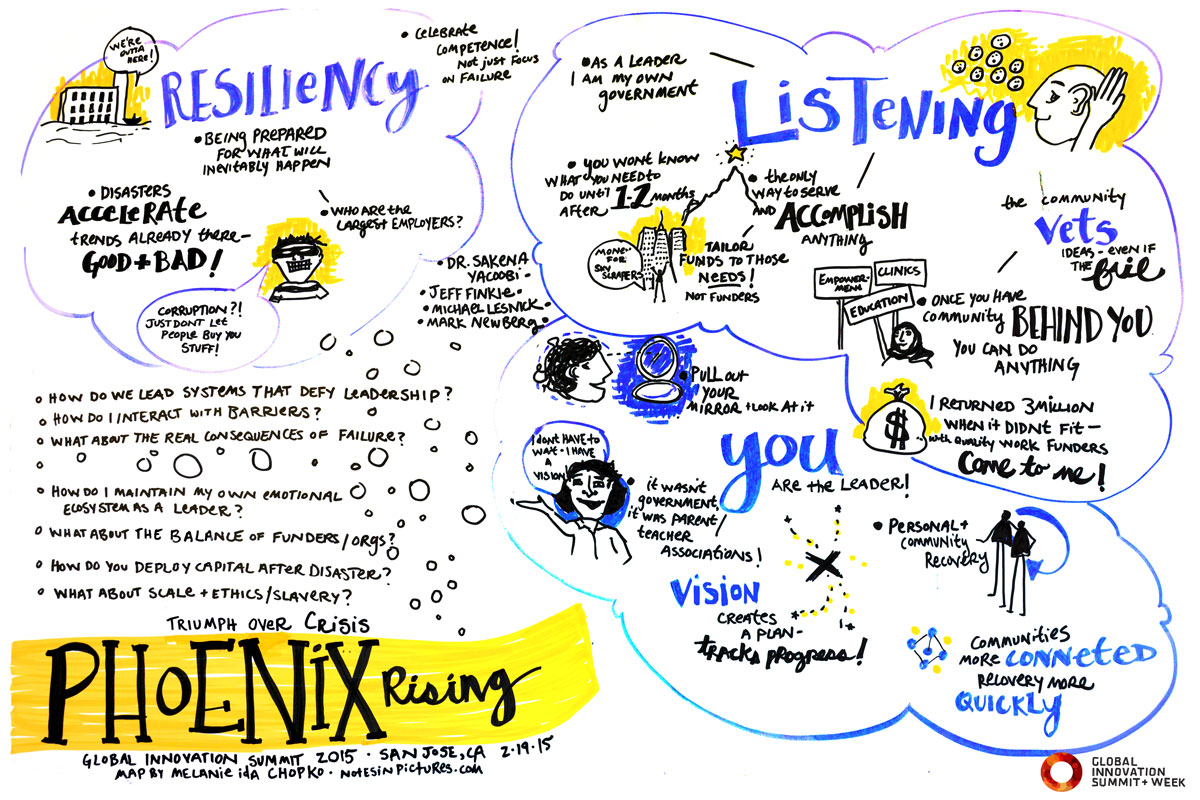 WE'RE
OUTTA
HERE!
RESILIENCY
• CELEBRATE
COMPETENCE!
NOT JUST FOCUS
ON FAILURE
• BEING PREPARED
FOR WHAT WILL
INEVITABLY HAPPEN
• DISASTERS
ACCELERATE
TRENDS ALREADY THERE-
GOOD + BAD!
• WHO ARE THE
LARGEST EMPLOYERS?
CORRUPTION?!
JUST DONT LET
PEOPLE BUY YOU
STUFF!
• DR. SAKENA
YACOOBI -
• JEFF FINKLE -
• MICHAEL LESNICK -
• MARK NEWBERG -
• AS A LEADER
I AM MY OWN
GOVERNMENT
LISTENING
• YOU WONT KNOW
WHAT YOU NEED TO
DO UNTIL
AFTER 1-2 MONTHS
• THE ONLY
WAY TO SERVE
AND ACCOMPLISH
ANYTHING
MONEY
FOR
SKY
SCRAPERS
TAILOR
FUNDS TO THOSE
NEEDS!
NOT FUNDERS
THE COMMUNITY
VETS
IDEAS - EVEN IF
THE
EMPOWER-
MENT
CLINICS
EDUCATION
• ONCE YOU HAVE
COMMUNITY BEHIND YOU
YOU CAN DO
ANYTHING
• PULL OUT
YOUR
MIRROR + LOOK AT IT
$
I RETURNED 3 MILLION
WHEN IT DIDNT FIT -
WITH QUALITY WORK FUNDERS
COME TO ME!
YOU
ARE THE LEADER!
I DONT HAVE TO
WAIT - I HAVE
A
VISION
• IT WASN'T
GOVERNMENT,
IT WAS PARENT
TEACHER
ASSOCIATIONS!
VISION
CREATES
A PLAN -
TRACKS PROGRESS!
• PERSONAL +
COMMUNITY
RECOVERY
COMMUNITIES
MORE CONNETED
RECOVERY MORE
QUICKLY
○ HOW DO WE LEAD SYSTEMS THAT DEFY LEADERSHIP?
○ HOW DO I INTERACT WITH BARRIERS?
○ WHAT ABOUT THE REAL CONSEQUENCES OF FAILURE?
○ HOW DO I MAINTAIN MY OWN EMOTIONAL
ECOSYSTEM AS A LEADER?
○ WHAT ABOUT THE BALANCE OF FUNDERS/ORGS?
○ HOW DO YOU DEPLOY CAPITAL AFTER DISASTER?
○ WHAT ABOUT SCALE + ETHICS/SLAVERY?
TRIUMPH OVER CRISIS
PHOENIX Rising
GLOBAL INNOVATION SUMMIT 2015 · SAN JOSE, CA 2·19·15
MAP BY MELANIE IDA CHOPKO · NOTESINPICTURES.COM
GLOBAL
INNOVATION
SUMMIT + WEEK